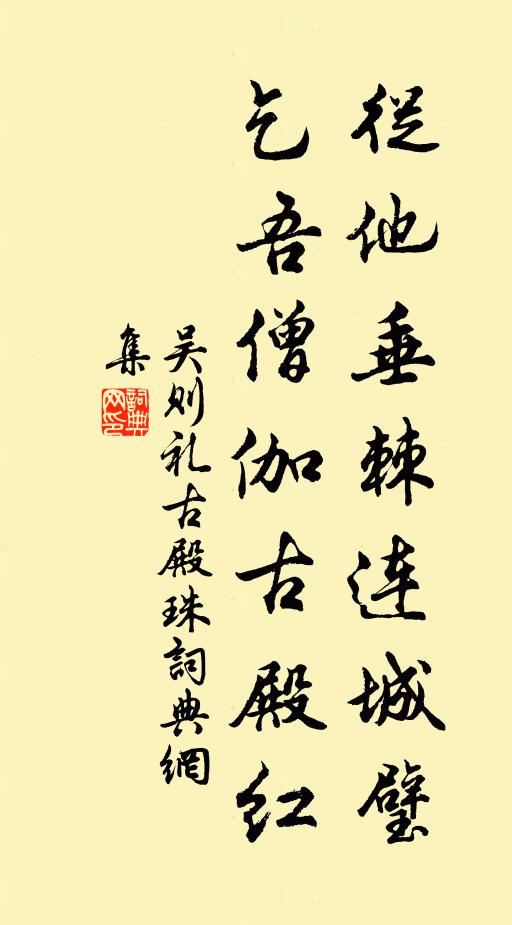 從他垂棘連城璧
乞吾僧伽古殿紅
吴则礼古殿珠詞典網
集
詞典
网印